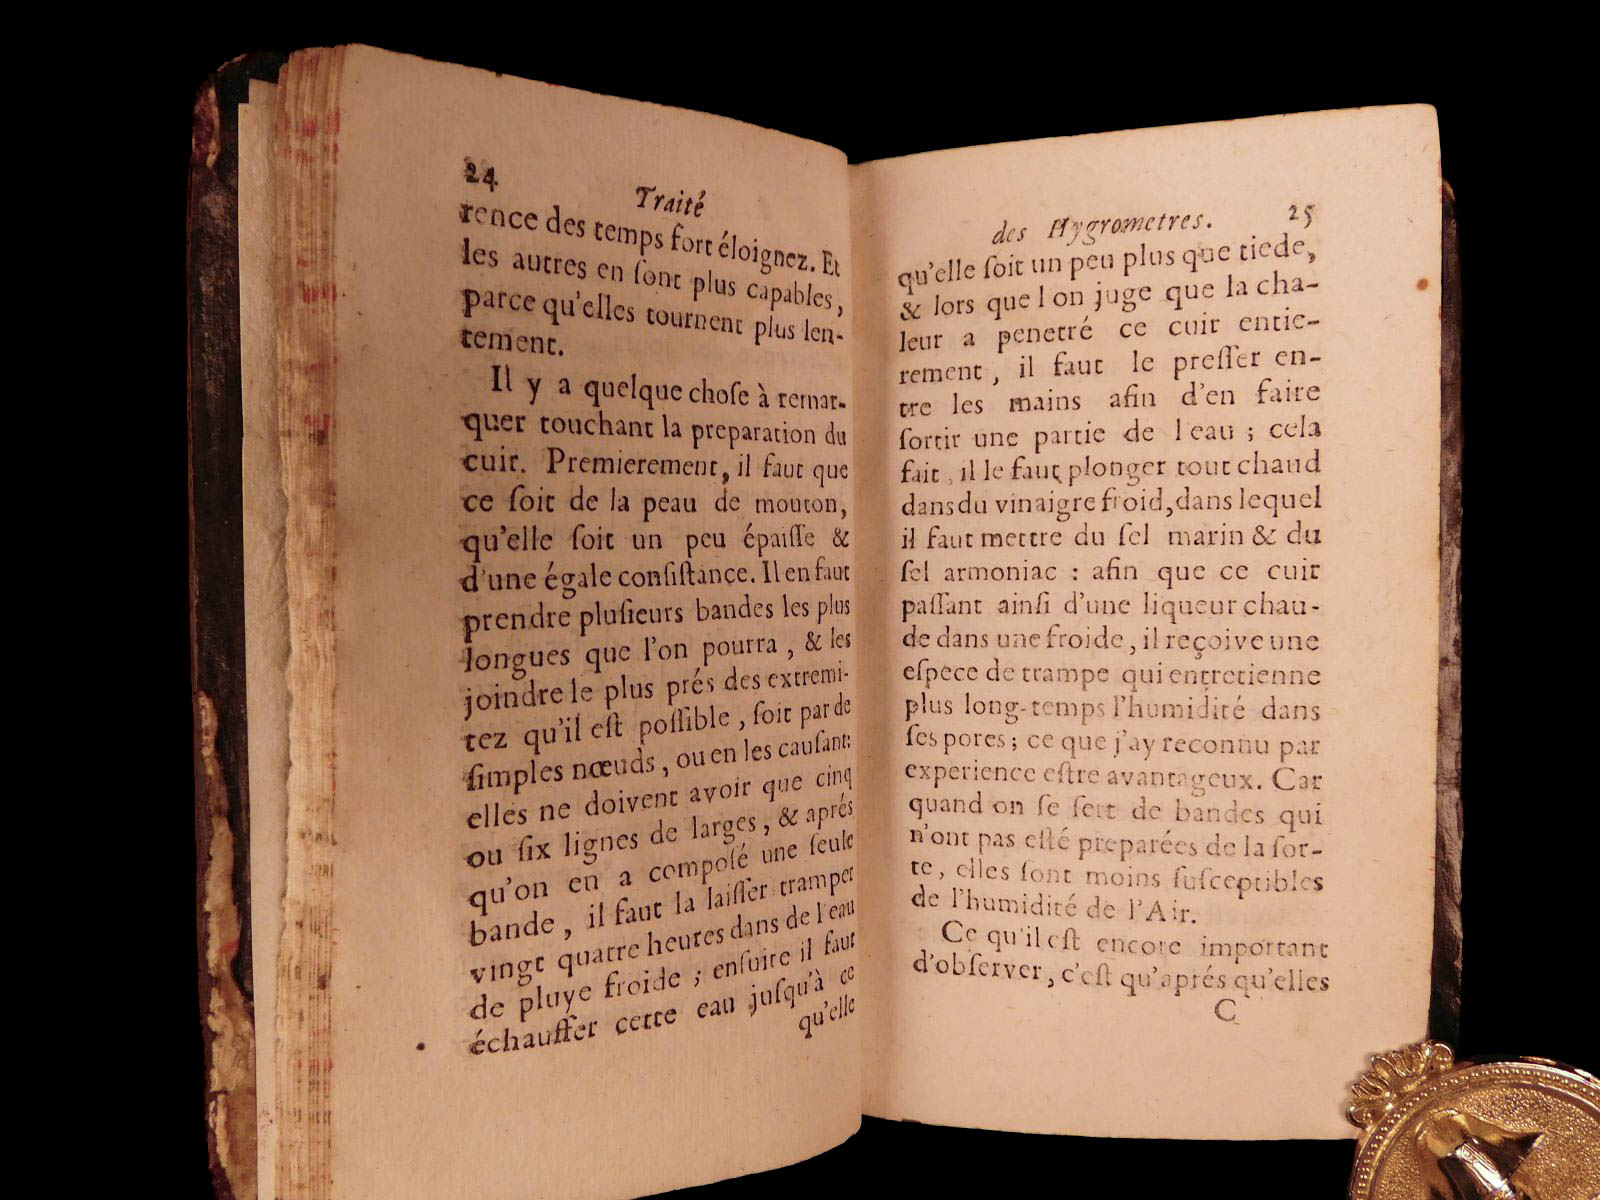 24
Traité
rence des temps fort éloignez. Et
les autres en ſont plus capables,
parce qu'elles tournent plus len-
tement.
Il y a quelque choſe à remar-
quer touchant la preparation du
cuir. Premierement, il faut que
ce ſoit de la peau de mouton,
qu'elle ſoit un peu épaiſſe &
d'une égale conſiſtance. Il en faut
prendre pluſieurs bandes les plus
longues que l'on pourra, & les
joindre le plus prés des extremi-
tez qu'il eſt poſſible, ſoit par de
ſimples nœuds, ou en les cauſant:
elles ne doivent avoir que cinq
ou ſix lignes de larges, & aprés
qu'on en a compoſé une ſeule
bande, il faut la laiſſer tramper
vingt quatre heures dans de l'eau
de pluye froide; enſuite il faut
échauffer cette eau juſqu'à ce
qu'elle
des Hygrometres.
25
qu'elle ſoit un peu plus que tiede,
& lors que l'on juge que la cha-
leur a penetré ce cuir entie-
rement, il faut le preſſer en-
tre les mains afin d'en faire
ſortir une partie de l'eau; cela
fait, il le faut plonger tout chaud
dans du vinaigre froid, dans lequel
il faut mettre du ſel marin & du
ſel armoniac: afin que ce cuir
paſſant ainſi d'une liqueur chau-
de dans une froide, il reçoive une
eſpece de trampe qui entretienne
plus long-temps l'humidité dans
ſes pores; ce que j'ay reconnu par
experience eſtre avantageux. Car
quand on ſe ſert de bandes qui
n'ont pas eſté preparées de la ſor-
te, elles ſont moins ſuſceptibles
de l'humidité de l'Air.
Ce qu'il eſt encore important
d'obſerver, c'eſt qu'aprés qu'elles
C